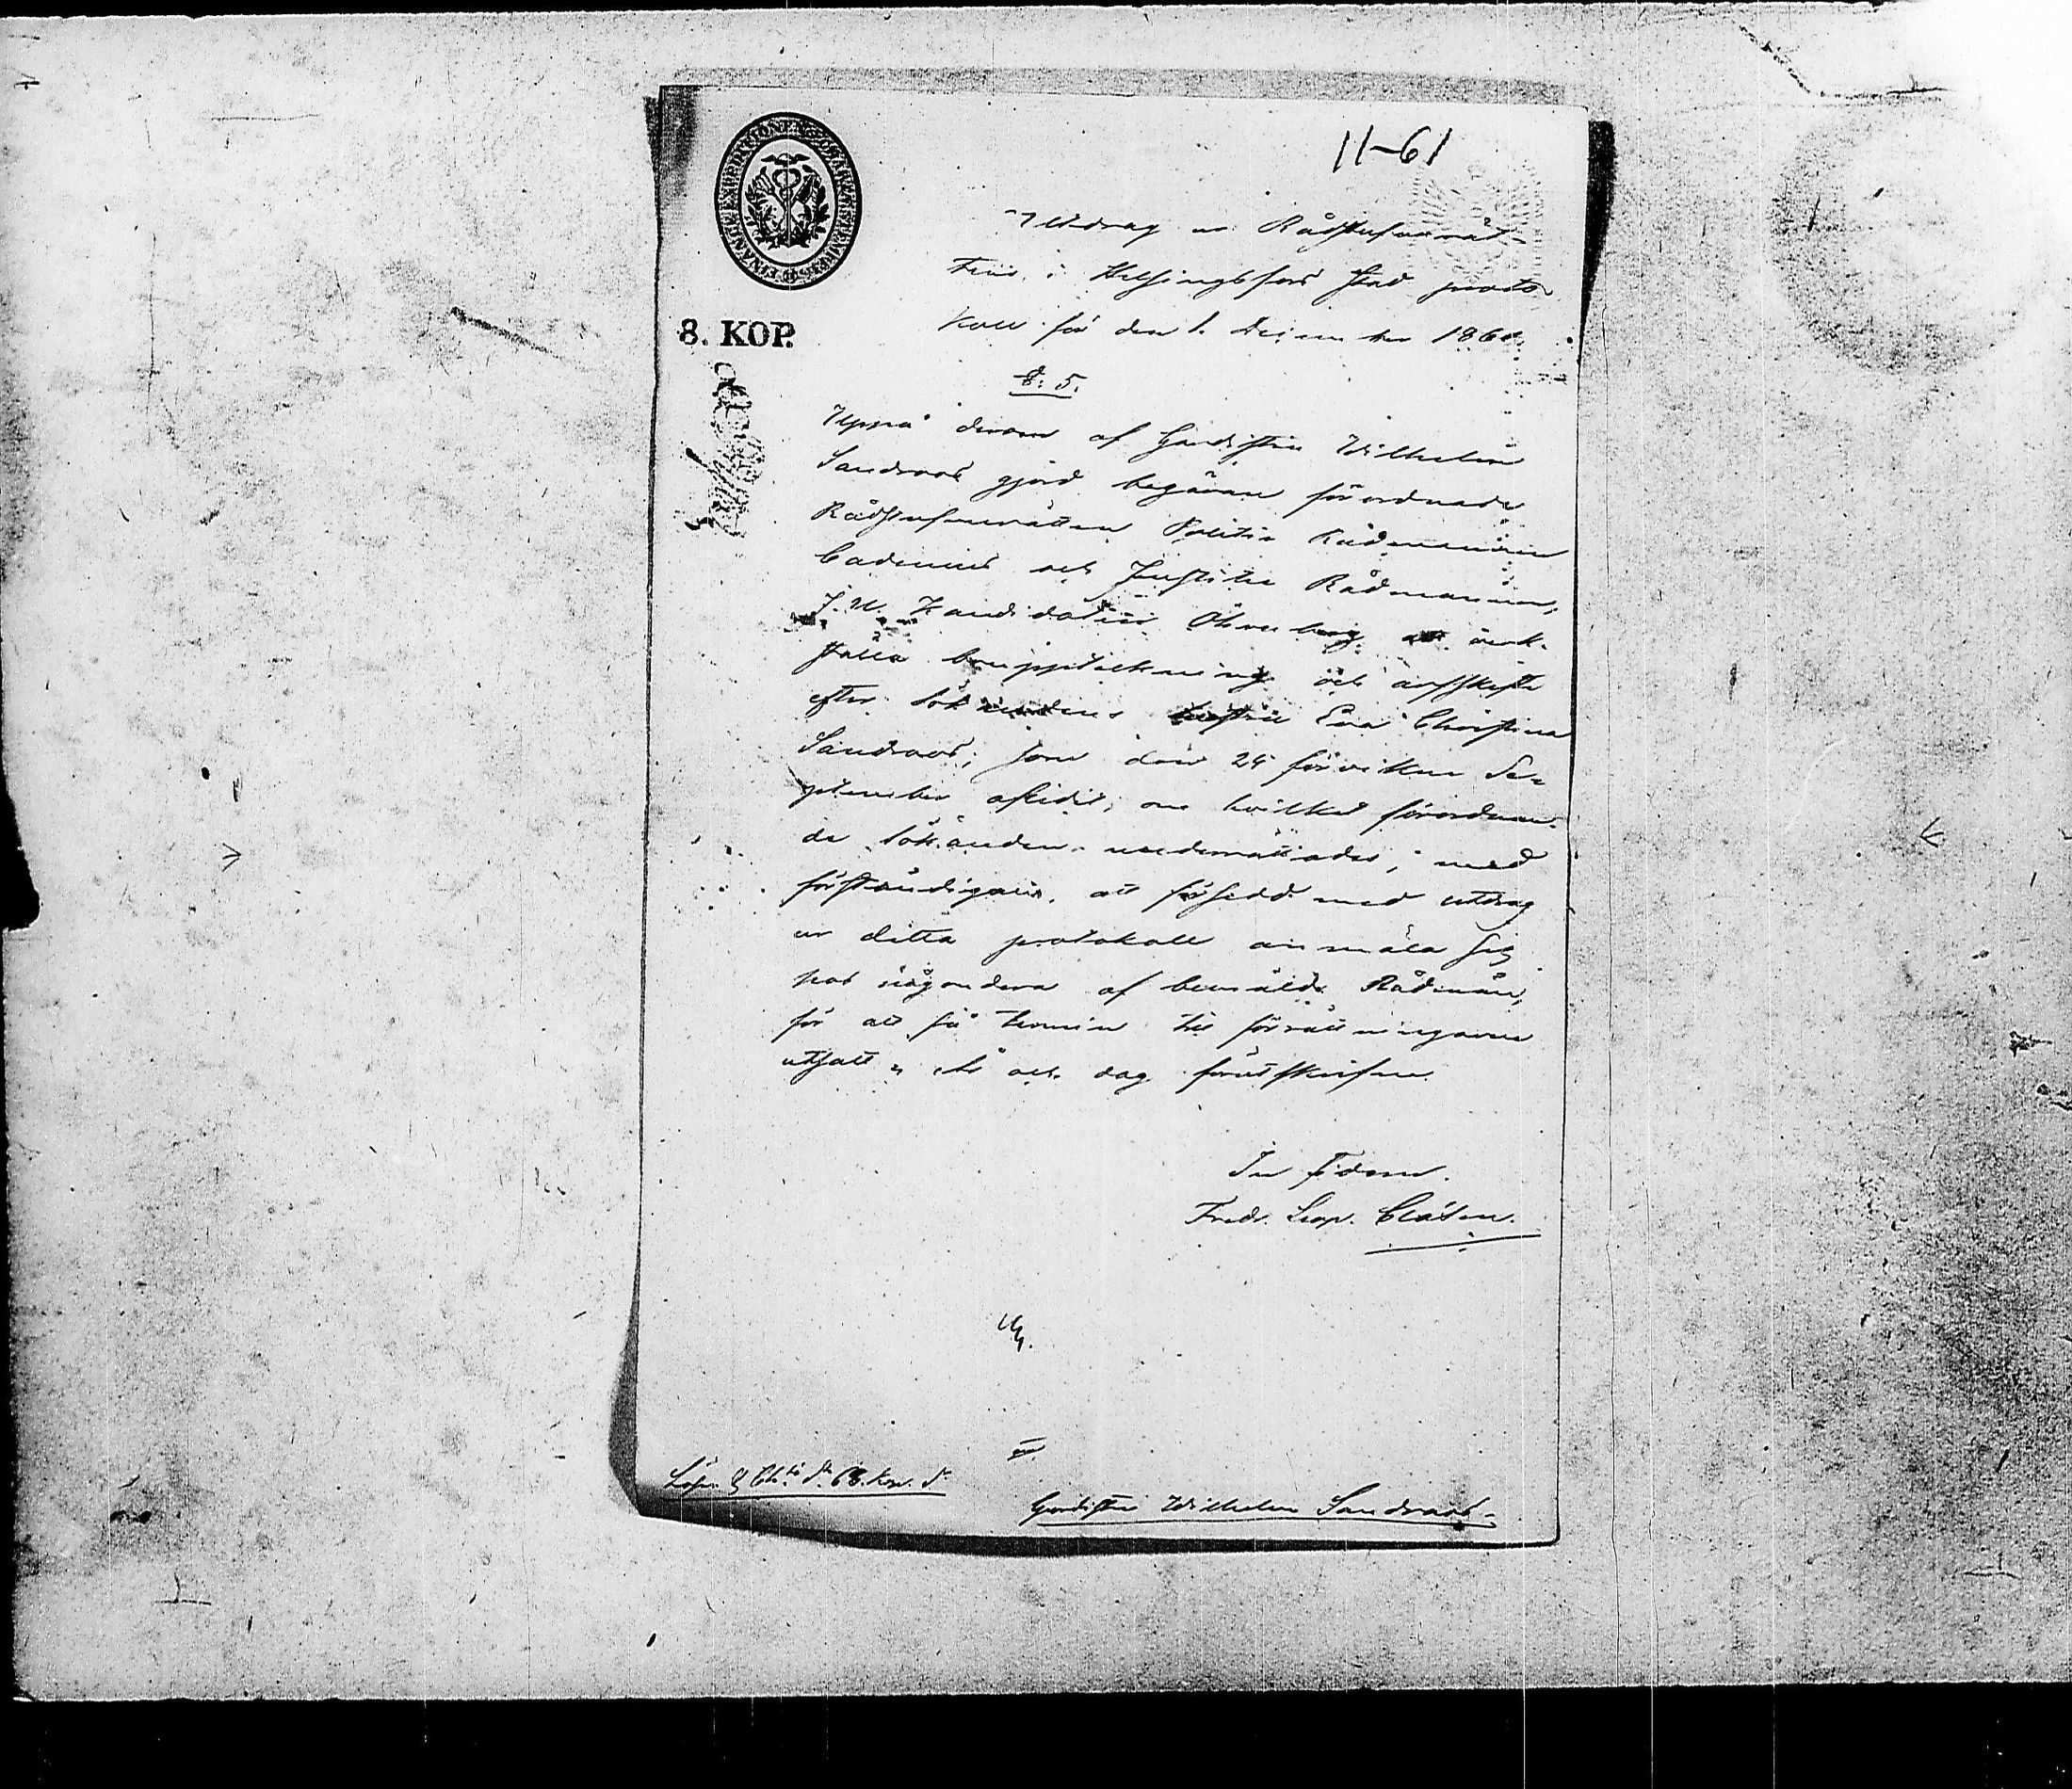 11-61
Utdrag ur Rådstufvurät-
tens i Helsingfors stad proto-
koll för den 1. December 1860.
8. KOP.
§: 5.
Uppå derom af Gardisten Wilhelm
Sandroos gjord begäran förordnade
Rådstufvurätten Politie Rådmannen
Cadenius och Justitie Rådmannen,
J. U. Kandidaten Öhrnberg att verk-
ställa bouppteckning och arfskifte
efter sökandens hustru Eva Christina
Sandroos, som den 24 förvikne Se-
ptember aflidit; om hvilket förordnan-
de sökanden underrättades, med
förständigande, att försedd med utdrag
ur detta protokoll anmäla sig
hos någondera af bemälde Rådmän,
för att få termin till förrättningarne
utsatt; År och dag förutskrifne.
In fidem.
Fredr. Leop. Clásen.
Lösen & Ch. S. 68. kop. S.
Gardisten Wilhelm Sandroos.